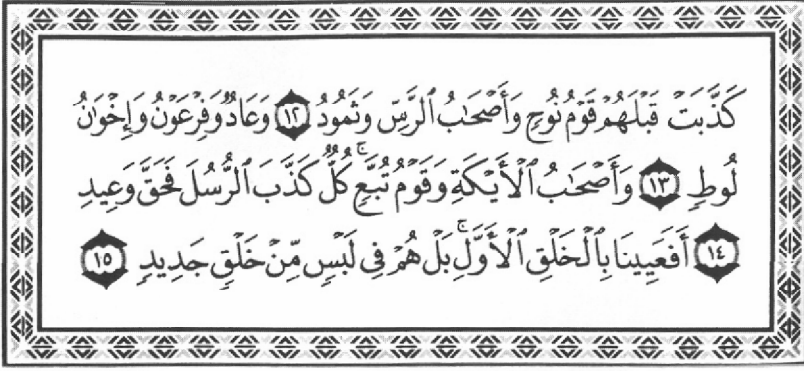 كَذَّبَتۡ قَبۡلَهُمۡ قَوۡمُ نُوحٖ وَأَصۡحَٰبُ ٱلرَّسِّ وَثَمُودُ ١٢ وَعَادٞ وَفِرۡعَوۡنُ وَإِخۡوَٰنُ
لُوطٖ ١٣ وَأَصۡحَٰبُ ٱلۡأَيۡكَةِ وَقَوۡمُ تُبَّعٖۚ كُلّٞ كَذَّبَ ٱلرُّسُلَ فَحَقَّ وَعِيدِ
١٤ أَفَعَيِينَا بِٱلۡخَلۡقِ ٱلۡأَوَّلِۚ بَلۡ هُمۡ فِي لَبۡسٖ مِّنۡ خَلۡقٖ جَدِيدٖ ١٥